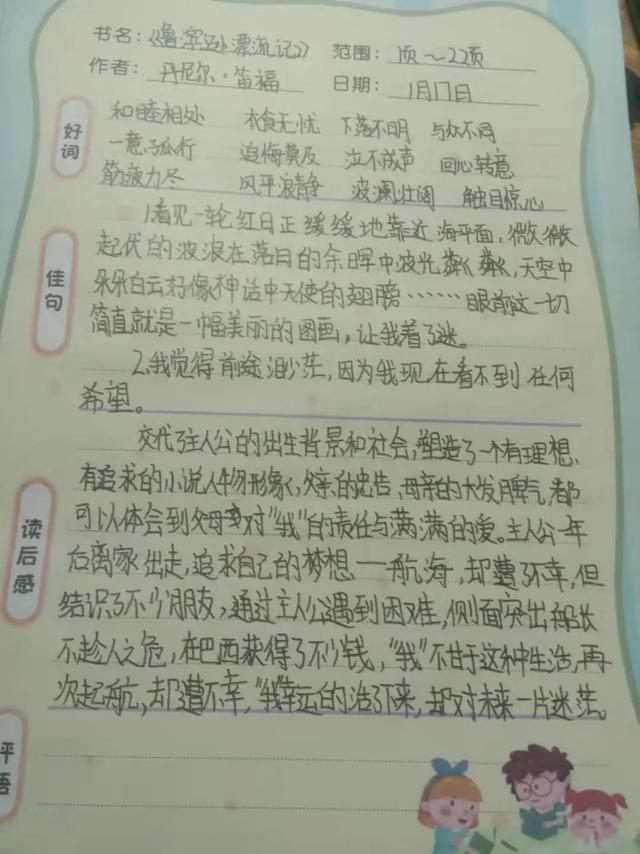 书名:《鲁滨逊漂流记》 范围: 1页~22页
作者: 丹尼尔·笛福 日期: 1月17日
好词
和睦相处 衣食无忧 下落不明 与众不同
一意孤行 追悔莫及 泣不成声 回心转意
筋疲力尽 风平浪静 波澜壮阔 触目惊心
佳句
1.看见一轮红日正缓缓地靠近海平面,微微
起伏的波浪在落日的余晖中波光粼粼,天空中
朵朵白云好像神话中天使的翅膀……眼前这一切
简直就是一幅美丽的图画,让我着了迷。
2.我觉得前途渺茫,因为我现在看不到任何
希望。
读后感
交代了主人公的出生背景和社会,塑造了一个有理想、
有追求的小说人物形象,父亲的忠告,母亲的大发脾气,都
可以体会到父母对“我”的责任与满满的爱。主人公一年
后离家出走,追求自己的梦想——航海,却遭了不幸,但
结识了不少朋友,通过主人公遇到困难,侧面突出船长
不趁人之危,在巴西获得了不少钱,“我”不甘于这种生活,再
次起航,却遭不幸,“我”幸运的活了下来,却对未来一片迷茫。
评语